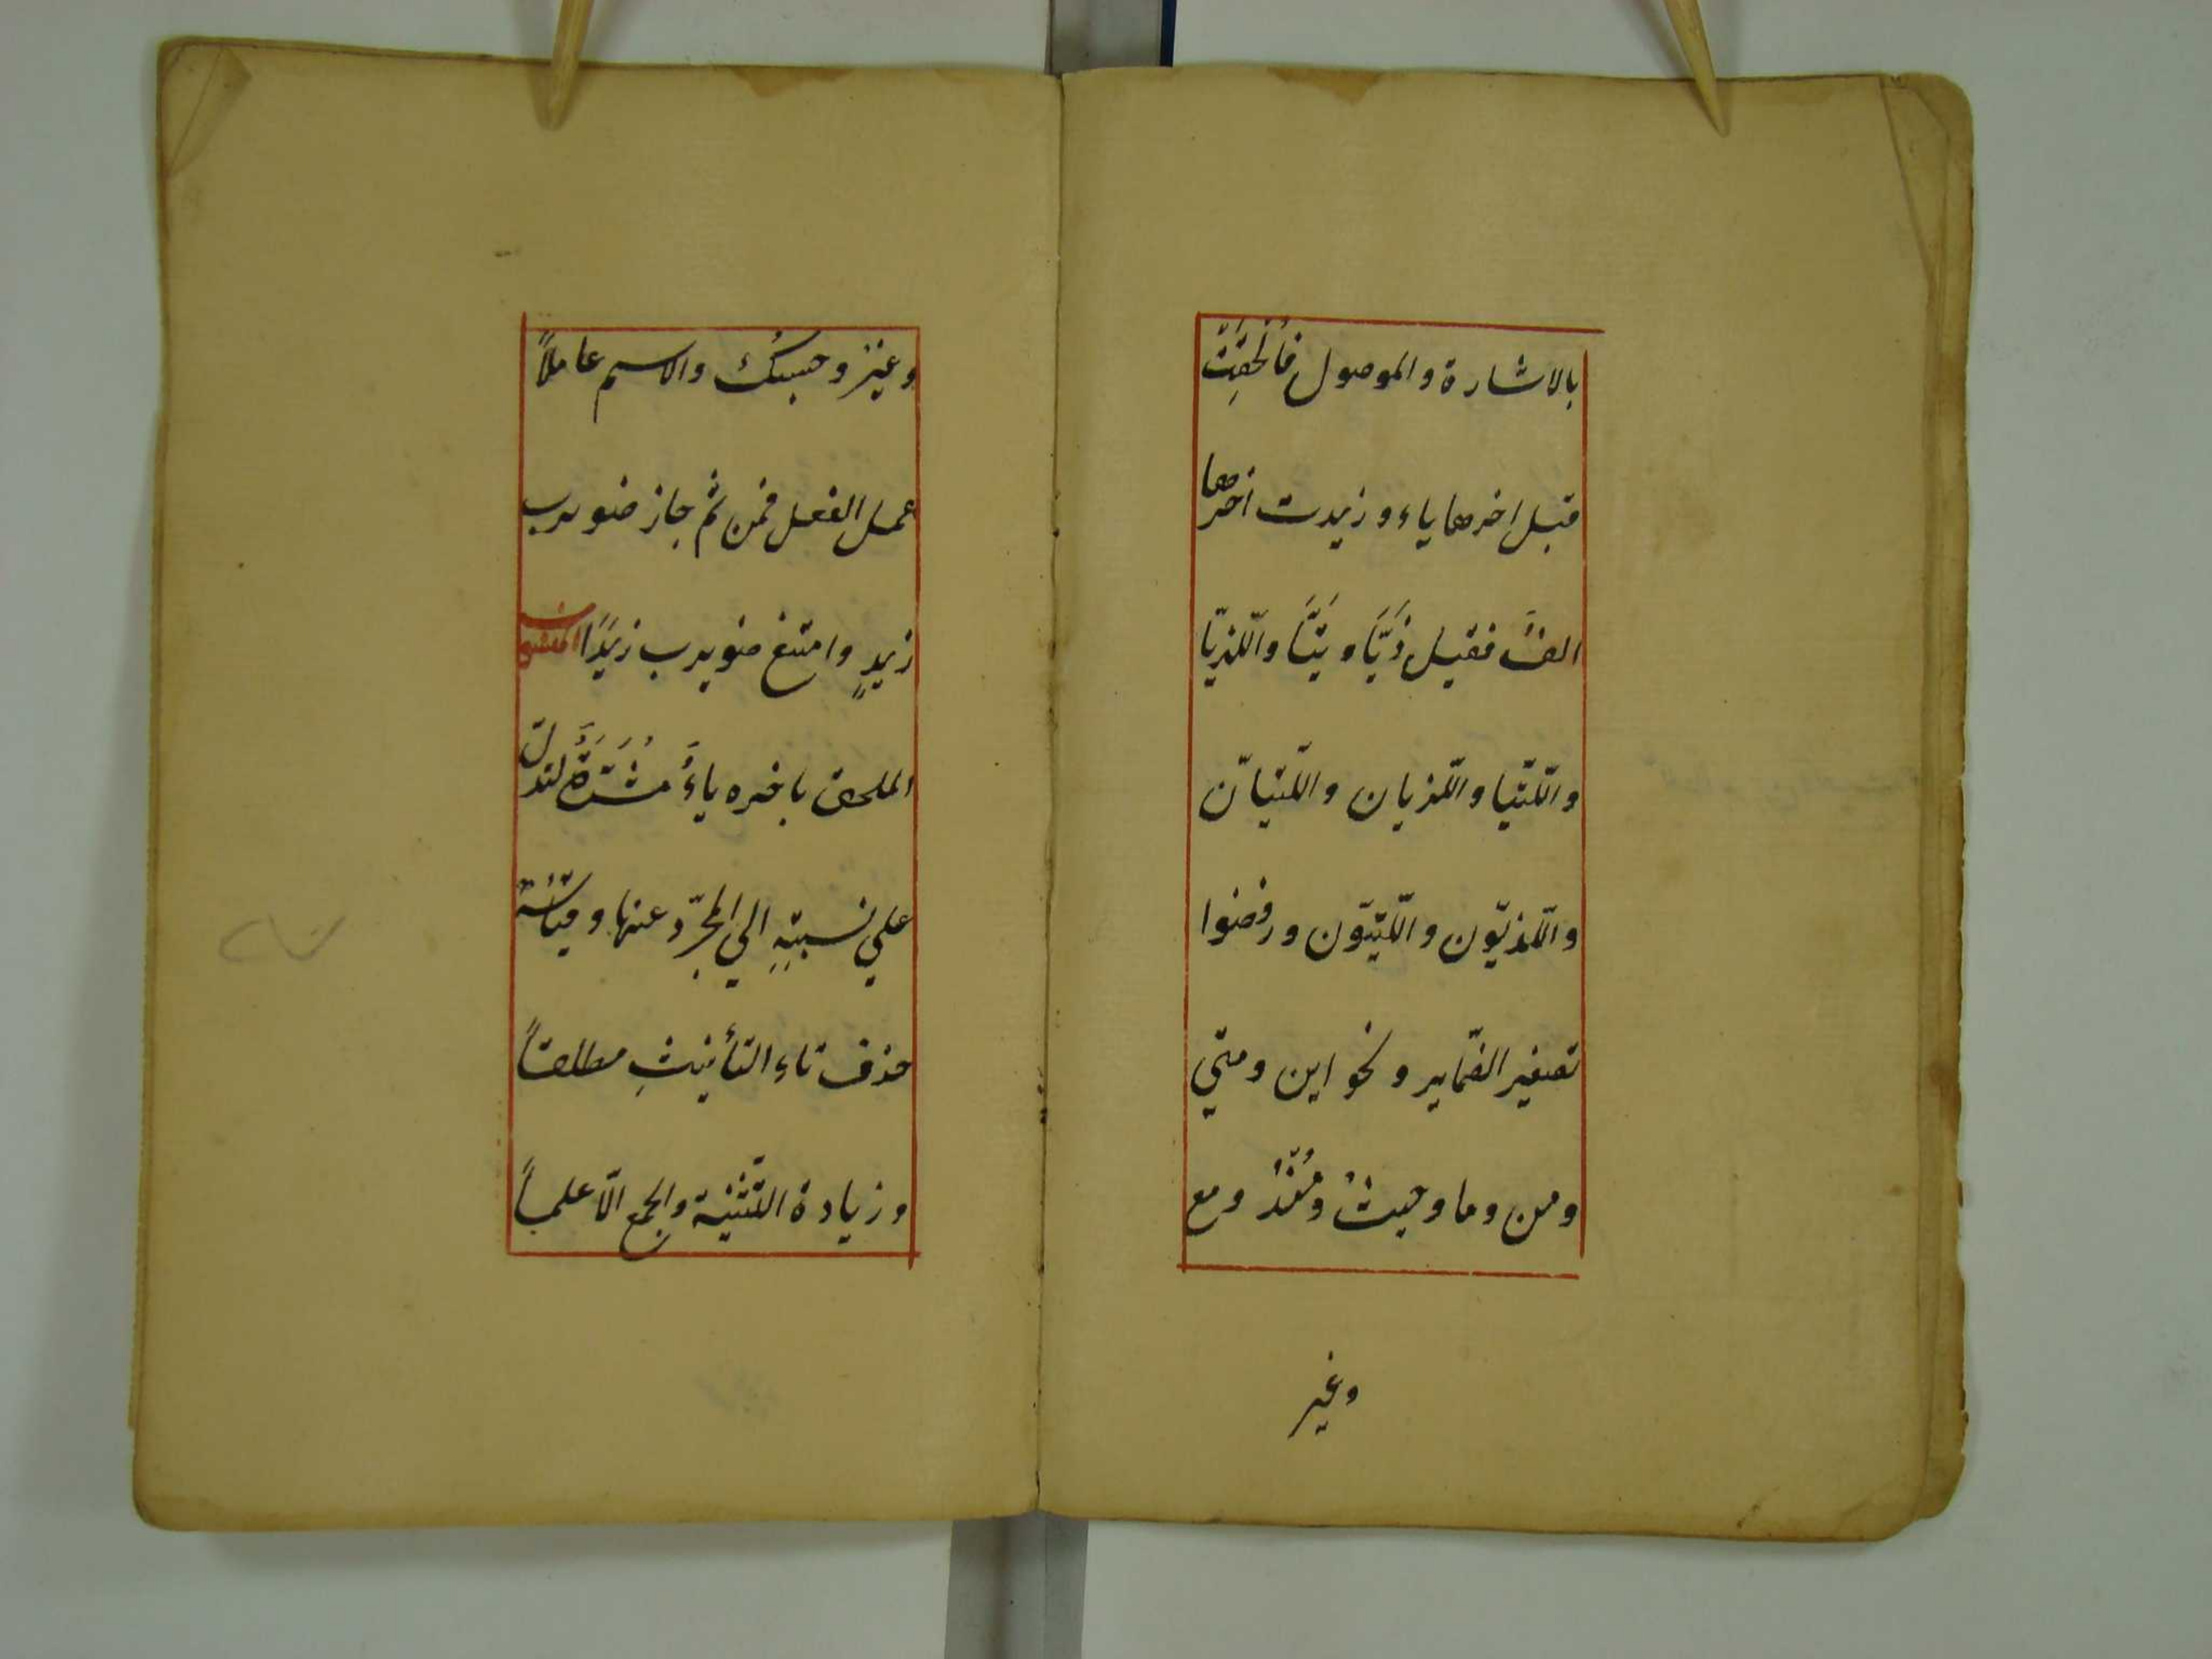 بالاشارة والموصول فأُلْحِقَتْ
قبل اخرهما ياء وزيدت اخرهما
الفٌ فقيل ذَيَّا وتَيَّا والّلذيّا
والّلتّيا والّلذيان والّلتيانّ
والّلذيّون والّلتيّون ورفضوا
تصغير الضّماير ونحو اين ومتي
ومن وما وحيثُ ومُنْذُ ومع
وغير
وغير وحسبُك والاسم عاملاً
عمل الفعل فمن ثمّ جاز ضويرب
زيدٍ وامتنع ضويرب زَيدًا المنسوب
الملحق باخره ياءٌ مُشَدَّدَةٌ لتدلّ
علي نسبتِهِ الي المجرّد عنها وقياسُهُ
حذف تاءِ التأنيثِ مطلقاً
وزيادة التّثنية والجمع الّا علماً